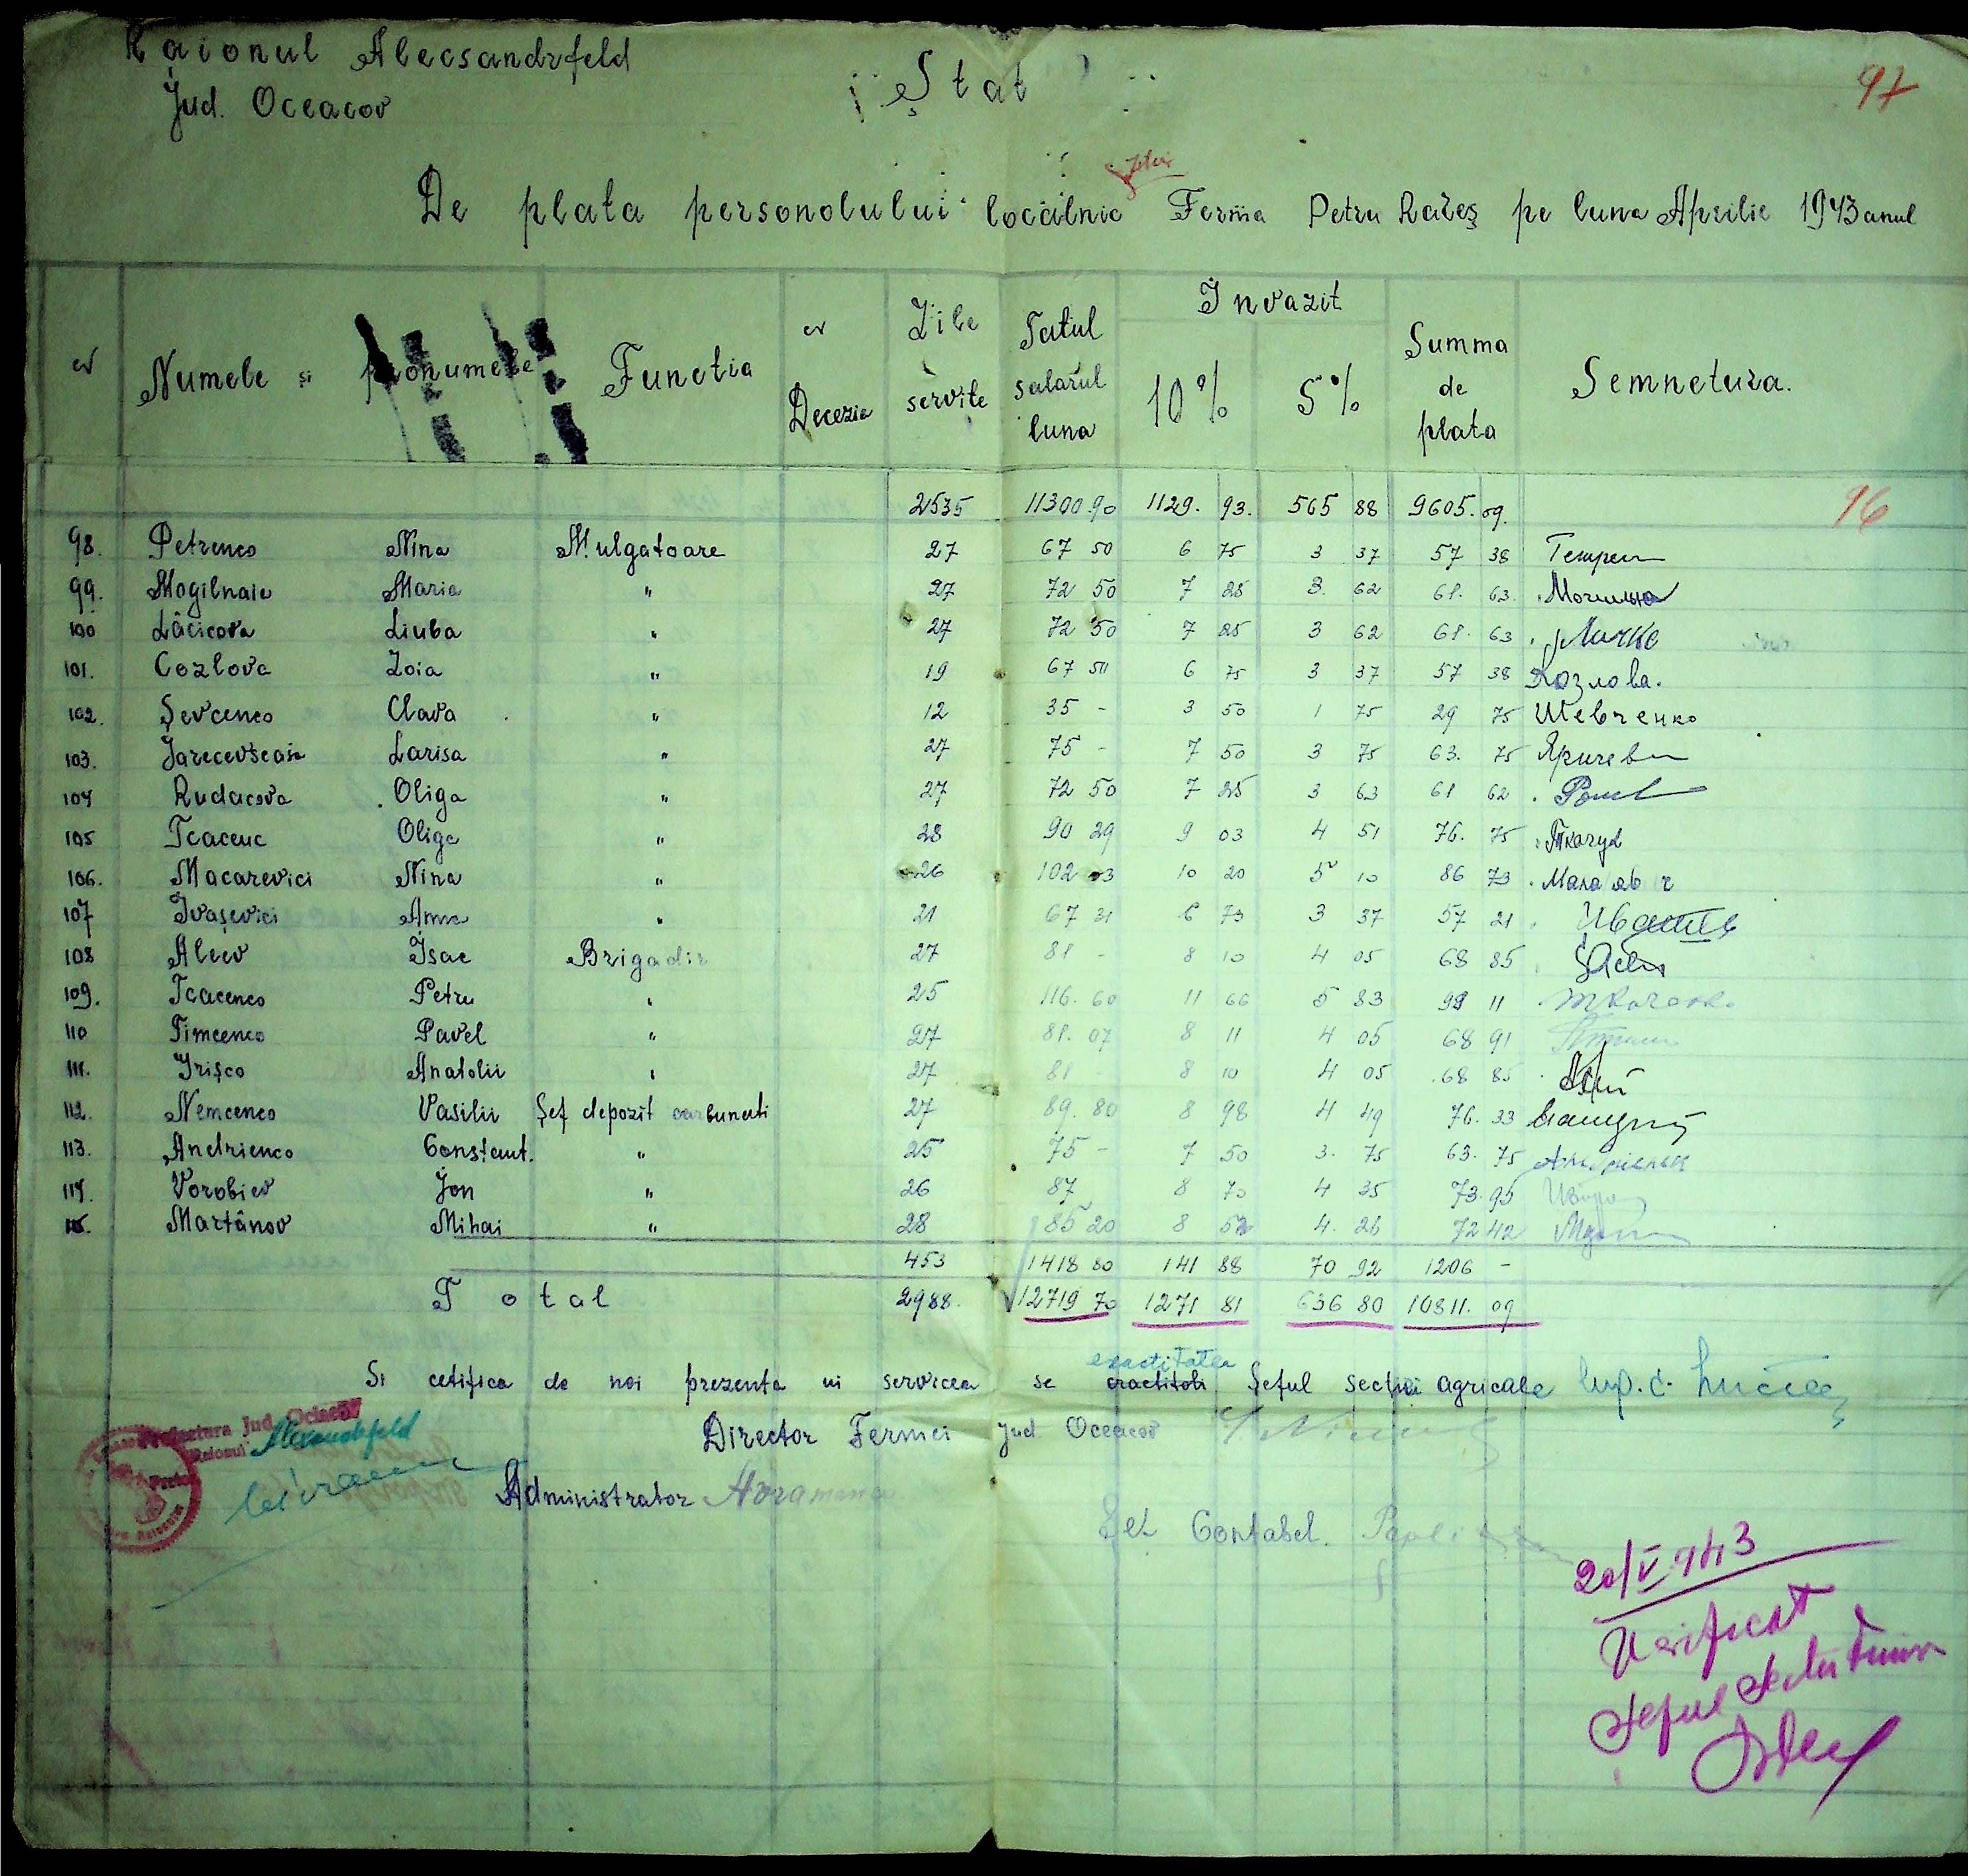 Raionul Alecsandrfeld
Jud. Oceacov
Ștat
97
De plata personolului localnic Ferma Petru Rareș pe luna Aprilie 1943 anul
Numele și pronumele Functia Decezie Zile servite Tatul salarul luna Invazit 10% 5% Summa de plata Semnetura.
2535 11300.90 1129. 93. 565 88 9605. 09. 96
98. Petrenco Nina Mulgatoare 27 67 50 6 75 3 37 57 38
99. Mogilnaie Maria " 27 72 50 7 25 3. 62 61. 63. Могильна
100 Lâcicova Liuba " 27 72 50 7 25 3 62 61. 63 Личко
101. Cozlova Zoia " 19 67 50 6 75 3 37 57 38 Козлова.
102. Șevcenco Clava " 12 35 - 3 50 1 75 29 75 Шевченко
103. Jarecevscaia Larisa " 27 75 - 7 50 3 75 63. 75 Яричев
104 Rudacova Oliga " 27 72 50 7 25 3 63 61 62
105 Tcacenc Olige " 28 90 29 9 03 4 51 76. 75
106. Macarevici Nina " 26 102 03 10 20 5 10 86 73
107 Ivașevici Anna " 21 67 31 6 73 3 37 57 21
108 Aleev Isac Brigadir 27 81 - 8 10 4 05 68 85
109. Tcacenco Petru " 25 116. 60 11 66 5 83 99 11
110 Timcenco Pavel " 27 81. 07 8 11 4 05 68 91
111. Grișco Anatolii " 27 81 - 8 10 4 05 68 85
112. Nemcenco Vasilii Șef depozit carbunati 27 89. 80 8 98 4 49 76. 33
113. Andrienco Constant. " 25 75 - 7 50 3. 75 63. 75
114. Vorobiev Jon " 26 87 8 70 4 35 73. 95
115. Martânov Mihai " 28 85 20 8 52 4. 26 72 42
453 1418 80 141 88 70 92 1206 -
Total 2988. 12719 70 1271 81 636 80 10811. 09
exactitatea
Si cetifica de noi prezenta in servicea se Șeful secției agricale
Prefectura Jud. Oceacov
Raionul Alexandrfeld
Director Fermei Jud Oceacov
Administrator
Șef Contabel.
20/V 943
Verificat
Șeful